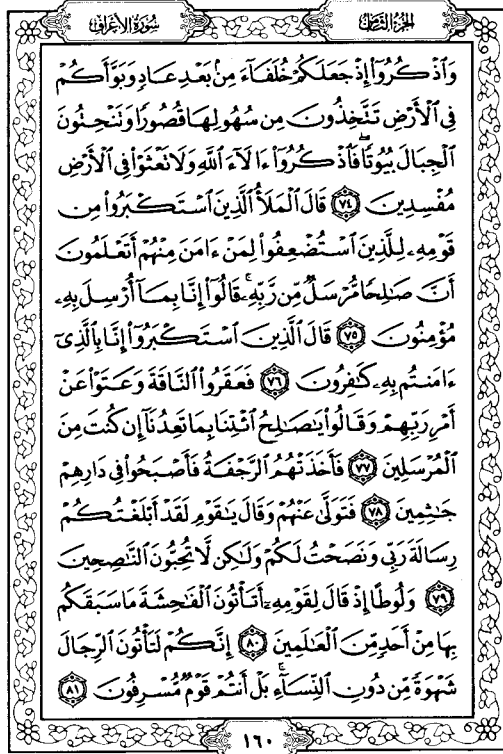 الجزء الثامن
سورة الأعراف
وَاذْكُرُوا إِذْ جَعَلَكُمْ خُلَفَاءَ مِنْ بَعْدِ عَادٍ وَبَوَّأَكُمْ
فِي الْأَرْضِ تَتَّخِذُونَ مِن سُهُولِهَا قُصُورًا وَتَنْحِتُونَ
الْجِبَالَ بُيُوتًا ۖ فَاذْكُرُوا ءَالَاءَ اللَّهِ وَلَا تَعْثَوْا فِي الْأَرْضِ
مُفْسِدِينَ ٧٤ قَالَ الْمَلَأُ الَّذِينَ اسْتَكْبَرُوا مِن
قَوْمِهِ لِلَّذِينَ اسْتُضْعِفُوا لِمَنْ ءَامَنَ مِنْهُمْ أَتَعْلَمُونَ
أَنَّ صَٰلِحًا مُّرْسَلٌ مِّن رَّبِّهِ ۚ قَالُوا إِنَّا بِمَا أُرْسِلَ بِهِ
مُؤْمِنُونَ ٧٥ قَالَ الَّذِينَ اسْتَكْبَرُوا إِنَّا بِالَّذِي
ءَامَنتُم بِهِ كَٰفِرُونَ ٧٦ فَعَقَرُوا النَّاقَةَ وَعَتَوْا عَنْ
أَمْرِ رَبِّهِمْ وَقَالُوا يَٰصَٰلِحُ ائْتِنَا بِمَا تَعِدُنَا إِن كُنتَ مِنَ
الْمُرْسَلِينَ ٧٧ فَأَخَذَتْهُمُ الرَّجْفَةُ فَأَصْبَحُوا فِي دَارِهِمْ
جَٰثِمِينَ ٧٨ فَتَوَلَّىٰ عَنْهُمْ وَقَالَ يَٰقَوْمِ لَقَدْ أَبْلَغْتُكُمْ
رِسَالَةَ رَبِّي وَنَصَحْتُ لَكُمْ وَلَٰكِن لَّا تُحِبُّونَ النَّٰصِحِينَ
٧٩ وَلُوطًا إِذْ قَالَ لِقَوْمِهِ أَتَأْتُونَ الْفَٰحِشَةَ مَا سَبَقَكُم
بِهَا مِنْ أَحَدٍ مِّنَ الْعَٰلَمِينَ ٨٠ إِنَّكُمْ لَتَأْتُونَ الرِّجَالَ
شَهْوَةً مِّن دُونِ النِّسَاءِ ۚ بَلْ أَنتُمْ قَوْمٌ مُّسْرِفُونَ ٨١
١٦٠